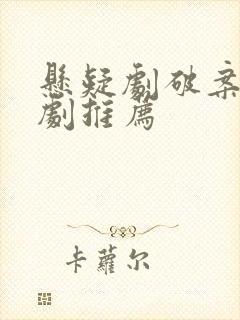 懸疑劇破案
劇推薦
卡蘿尔